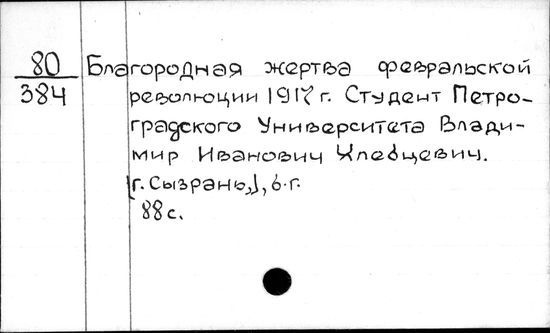 80
384
Благородная жертва февральской
революции 1917 г. Студент Петро-
градского Университета Влади-
мир Иванович Хлебцевич.
[г. Сызрань,], б. г.
88 с.